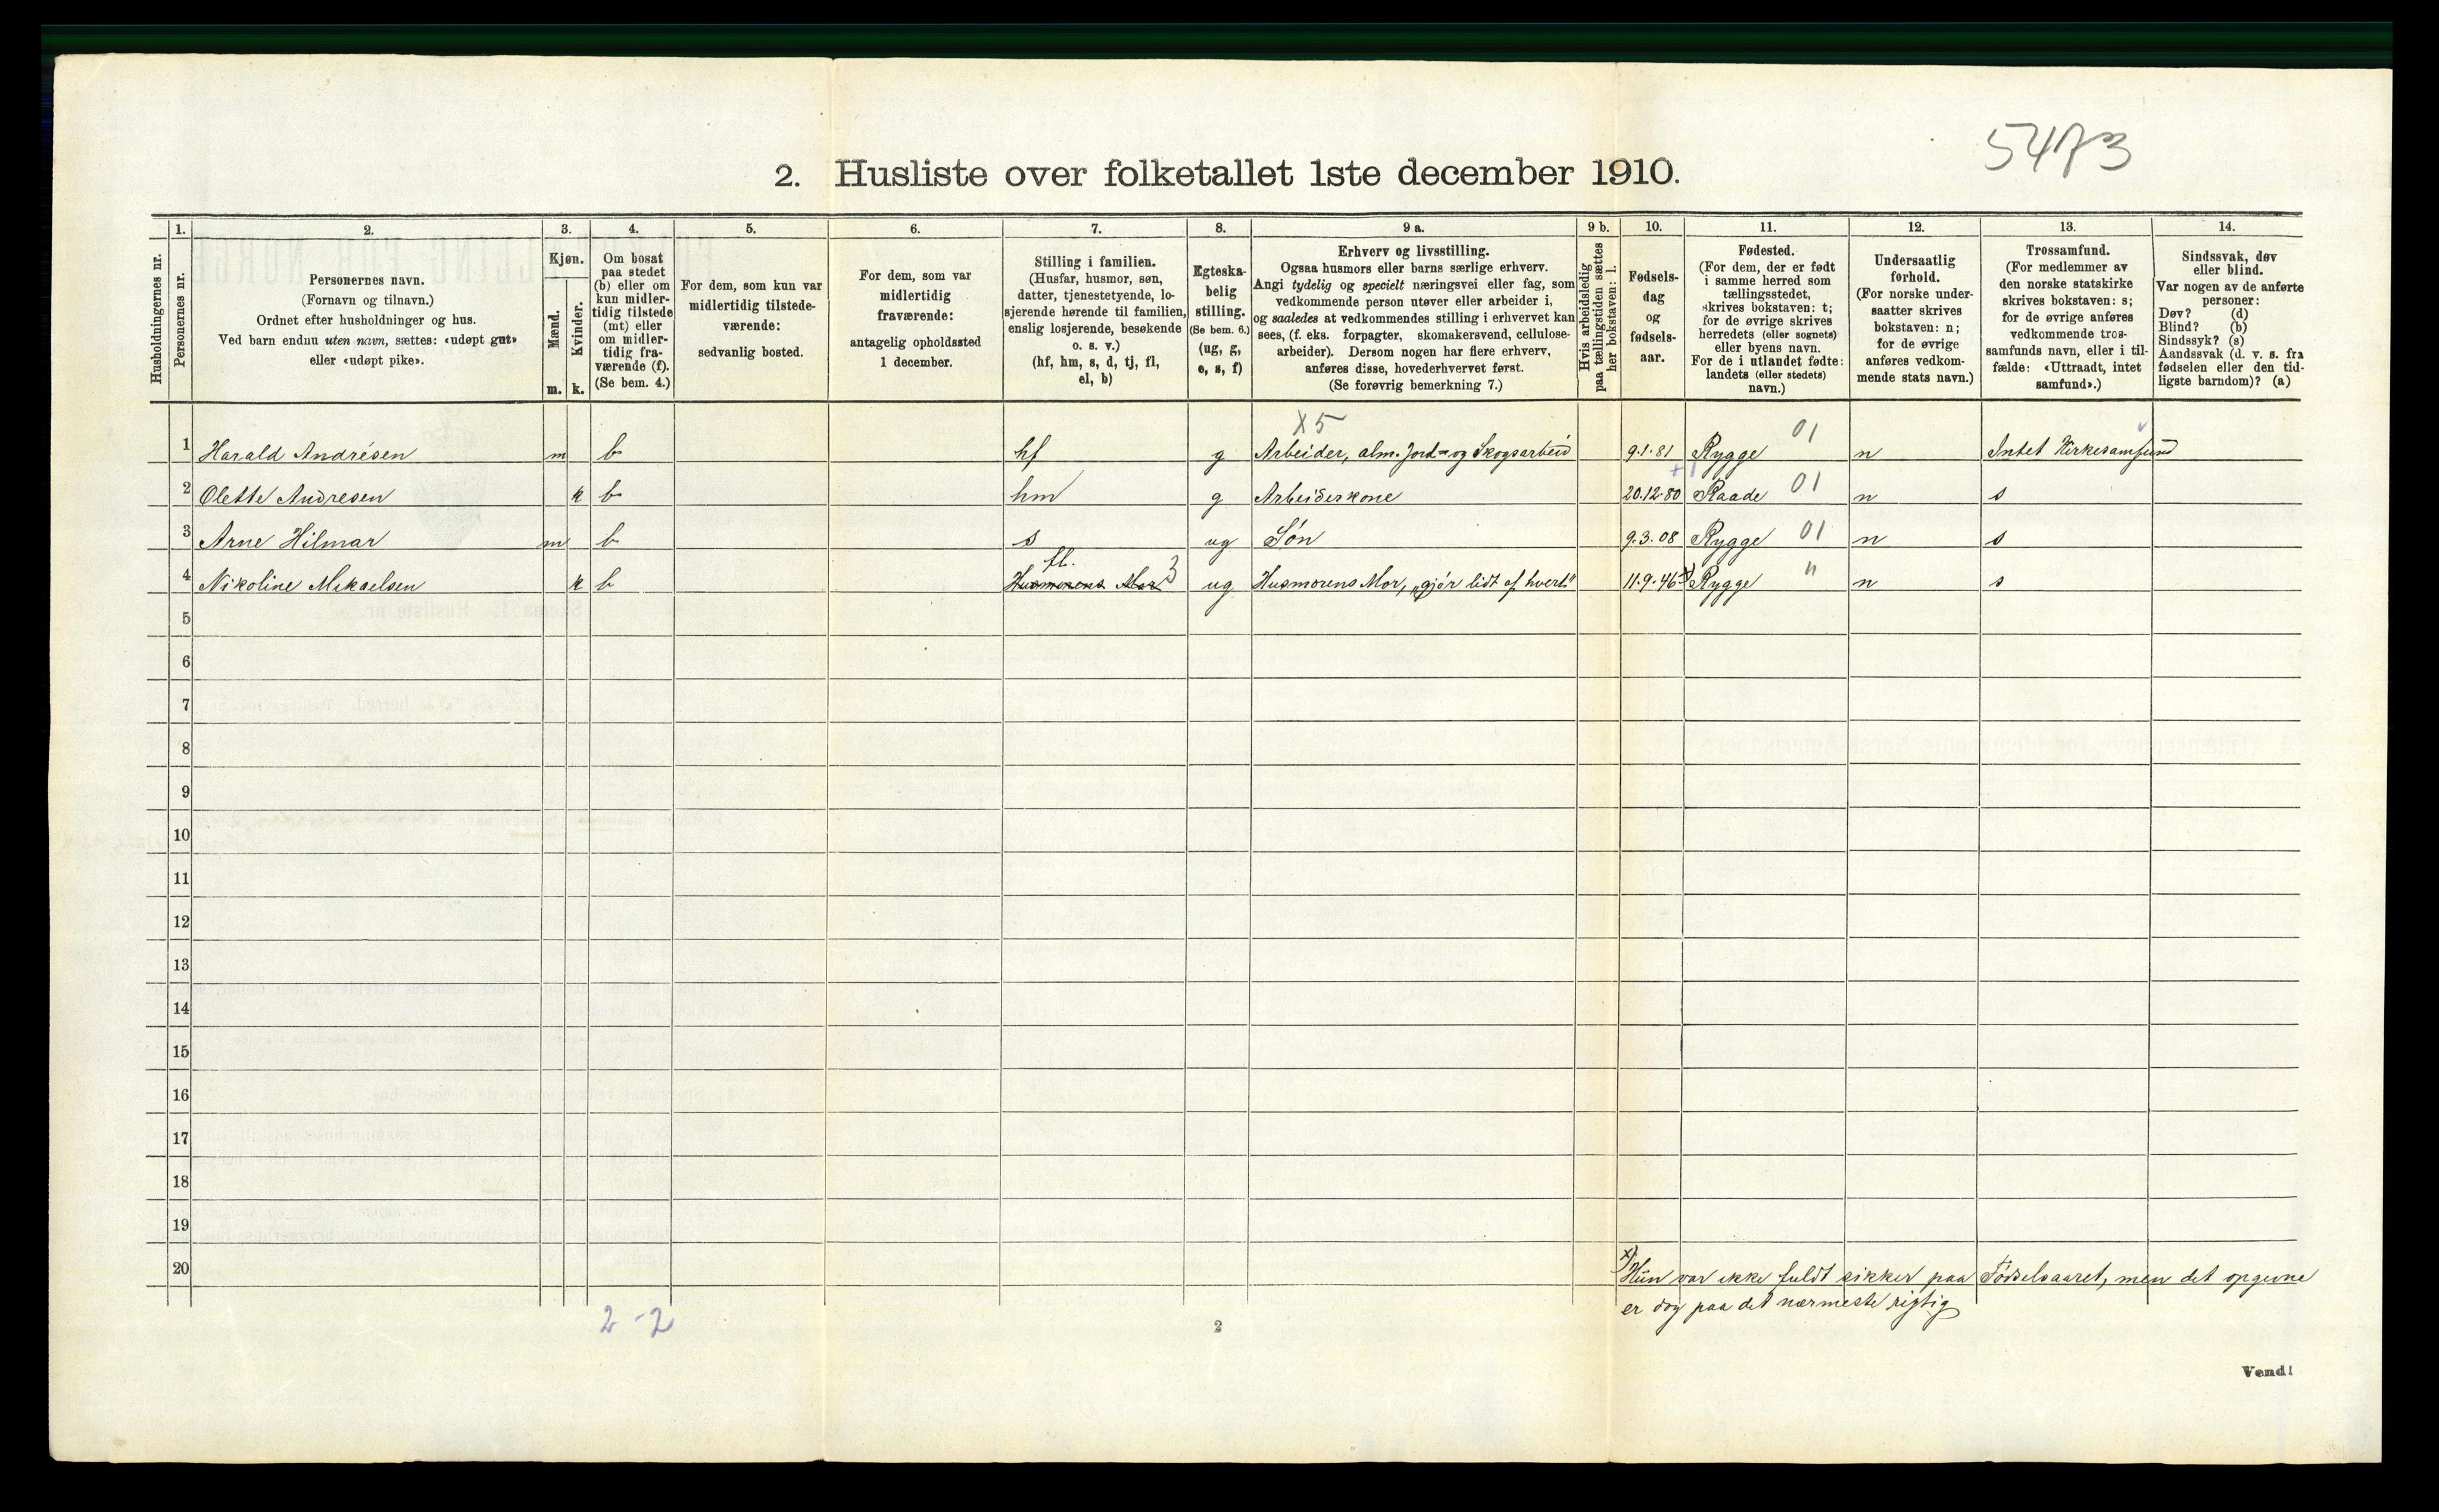 5473
2. Husliste over folketallet 1ste december 1910.
1. 2. 3. 4. 5. 6. 7. 8. 9 a. 9 b. 10. 11. 12. 13. 14.
Husholdningernes nr.
Personernes nr.
Personernes navn.
(Fornavn og tilnavn.)
Ordnet efter husholdninger og hus.
Ved barn endnu uten navn, sættes: «udøpt gut»
eller «udøpt pike».
Kjøn.
Mænd.
Kvinder.
m. k.
Om bosat
paa stedet
(b) eller om
kun midler-
tidig tilstede
(mt) eller
om midler-
tidig fra-
værende (f).
(Se bem. 4.)
For dem, som kun var
midlertidig tilstede-
værende:
sedvanlig bosted.
For dem, som var
midlertidig
fraværende:
antagelig opholdssted
1 december.
Stilling i familien.
(Husfar, husmor, søn,
datter, tjenestetyende, lo-
sjerende hørende til familien,
enslig losjerende, besøkende
o. s. v.)
(hf, hm, s, d, tj, fl,
el, b)
Egteska-
belig
stilling.
(Se bem. 6.)
(ug, g,
e, s, f)
Erhverv og livsstilling.
Ogsaa husmors eller barns særlige erhverv.
Angi tydelig og specielt næringsvei eller fag, som
vedkommende person utøver eller arbeider i,
og saaledes at vedkommendes stilling i erhvervet kan
sees, (f. eks. forpagter, skomakersvend, cellulose-
arbeider). Dersom nogen har flere erhverv,
anføres disse, hovederhvervet først.
(Se forøvrig bemerkning 7.)
Hvis arbeidsledig
paa tællingstiden sættes
her bokstaven: l.
Fødsels-
dag
og
fødsels-
aar.
Fødested.
(For dem, der er født
i samme herred som
tællingsstedet,
skrives bokstaven: t;
for de øvrige skrives
herredets (eller sognets)
eller byens navn.
For de i utlandet fødte:
landets (eller stedets)
navn.)
Undersaatlig
forhold.
(For norske under-
saatter skrives
bokstaven: n;
for de øvrige
anføres vedkom-
mende stats navn.)
Trossamfund.
(For medlemmer av
den norske statskirke
skrives bokstaven: s;
for de øvrige anføres
vedkommende tros-
samfunds navn, eller i til-
fælde: «Uttraadt, intet
samfund».)
Sindssvak, døv
eller blind.
Var nogen av de anførte
personer:
Døv? (d)
Blind? (b)
Sindssyk? (s)
Aandssvak (d. v. s. fra
fødselen eller den tid-
ligste barndom)? (a)
X5
1 Harald Andrésen m b hf g Arbeider, alm. Jord- og Skogsarbeid 9.1.81 Rygge 01 n Intet Kirkesamfund
2 Olette Andresen k b hm g Arbeiderkone 20.12.80 Raade 01 n s
3 Arne Hilmar m b s ug Søn 9.3.08 Rygge 01 n s
fl.
4 Nikoline Mikaelsen k b Husmorens Mor 3 ug Husmorens Mor, „gjør lidt af hvert" 11.9.46 x) Rygge " n s
5
6
7
8
9
10
11
12
13
14
15
16
17
18
19
20
x) Hun var ikke fuldt sikker paa Fødselsaaret, men det opgivne
er dog paa det nærmeste rigtig
2-2
2
Vend!